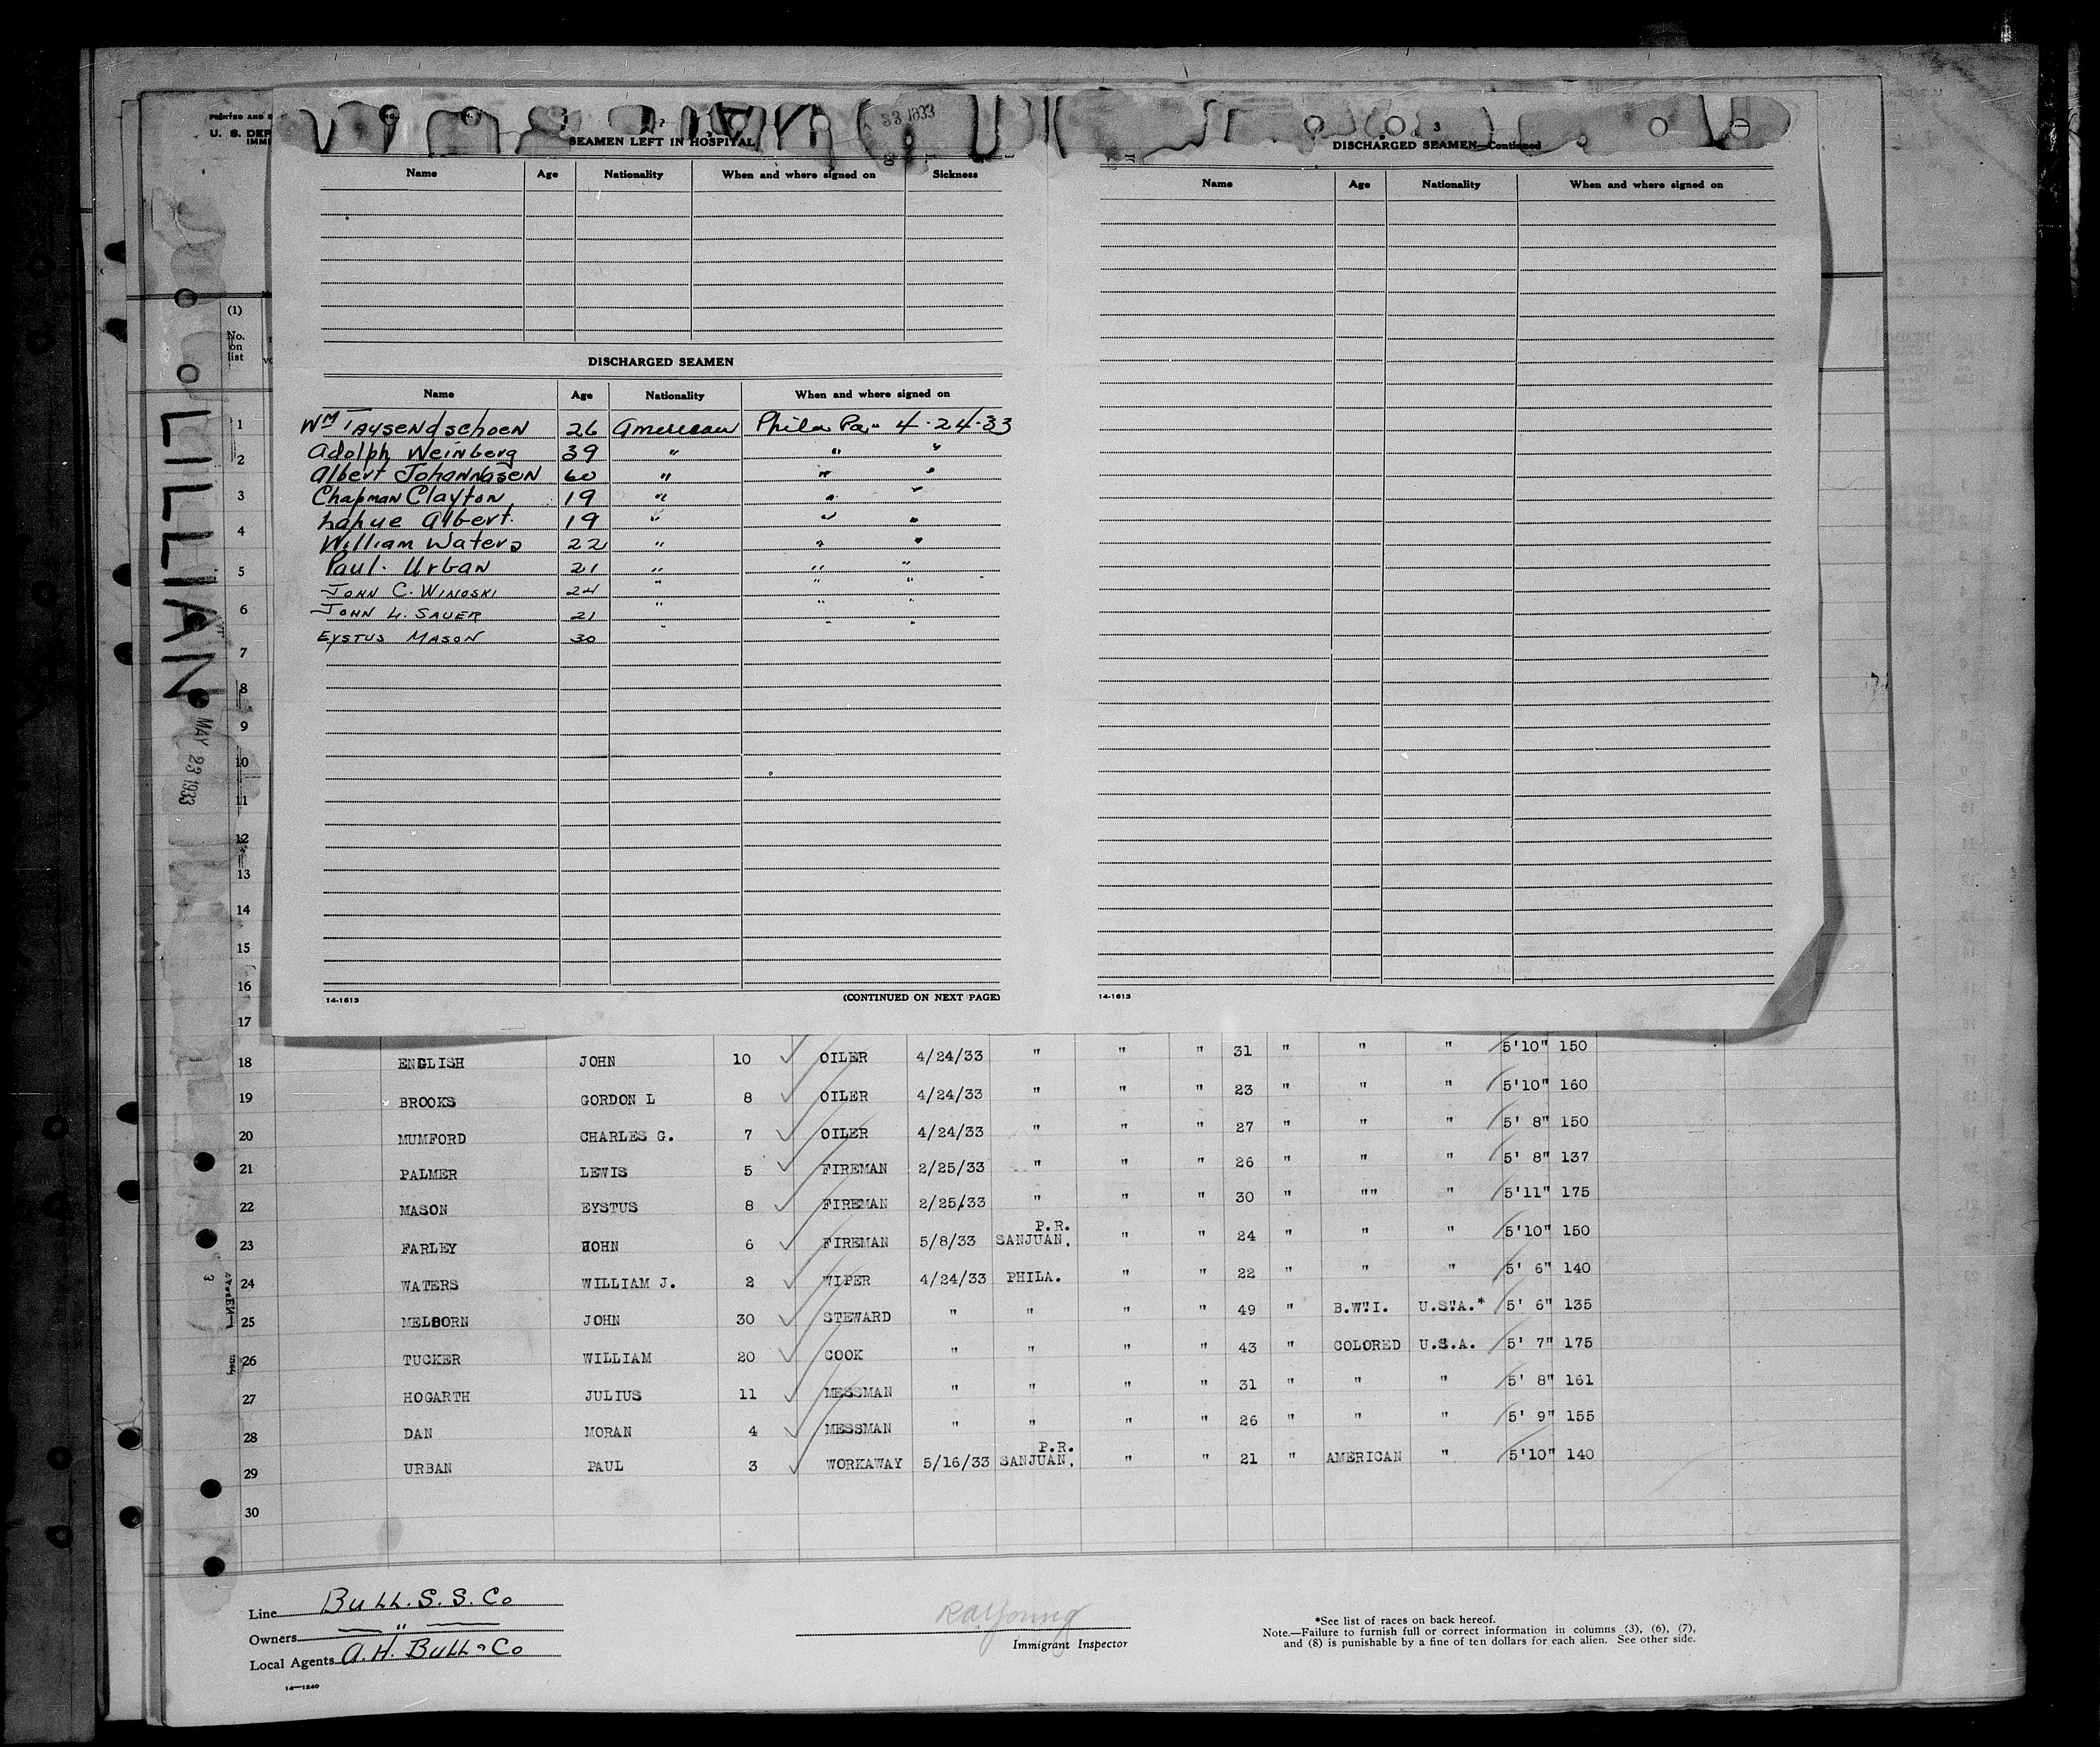 PRINTED AND
U. S. DEP
IMMI
33 1933
SEAMEN LEFT IN HOSPITAL
Name Age Nationality When and where signed on Sickness
DISCHARGED SEAMEN
Name Age Nationality When and where signed on
Wm Taysendschoen 26 American Phila Pa. 4-24-33
Adolph Weinberg 39 " " "
Albert Johannasen 60 " " "
Chapman Clayton 19 " " "
Lahue Albert. 19 " " "
William Waters 22 " " "
Paul. Urban 21 " " "
JOHN C. WINOSKI 24 " " "
JOHN L. SAUER 21 " " "
EYSTUS MASON 30 " " "
14-1613 (CONTINUED ON NEXT PAGE)
3
DISCHARGED SEAMEN—Continued
Name Age Nationality When and where signed on
14-1613
LILLIAN
MAY 23 1933
(1)
No.
on
list
1
2
3
4
5
6
7
8
9
10
11
12
13
14
15
16
17
18 ENGLISH JOHN 10 OILER 4/24/33 " " " 31 " " " 5'10" 150
19 BROOKS GORDON L 8 OILER 4/24/33 " " " 23 " " " 5'10" 160
20 MUMFORD CHARLES G. 7 OILER 4/24/33 " " " 27 " " " 5' 8" 150
21 PALMER LEWIS 5 FIREMAN 2/25/33 " " " 26 " " " 5' 8" 137
22 MASON EYSTUS 8 FIREMAN 2/25/33 " " " 30 " "" " 5'11" 175
23 FARLEY JOHN 6 FIREMAN 5/8/33 P.R. SANJUAN. " " 24 " " " 5'10" 150
24 WATERS WILLIAM J. 2 WIPER 4/24/33 PHILA. " " 22 " " " 5' 6" 140
25 MELBORN JOHN 30 STEWARD " " " " 49 " B.W.I. U.S.A.* 5' 6" 135
26 TUCKER WILLIAM 20 COOK " " " " 43 " COLORED U.S.A. 5' 7" 175
27 HOGARTH JULIUS 11 MESSMAN " " " " 31 " " " 5' 8" 161
28 DAN MORAN 4 MESSMAN " " " " 26 " " " 5' 9" 155
29 URBAN PAUL 3 WORKAWAY 5/16/33 P.R. SANJUAN. " " 21 " AMERICAN " 5'10" 140
30
Line Bull. S. S. Co
Owners "
Local Agents A. H. Bull & Co
14—1240
Immigrant Inspector
*See list of races on back hereof.
Note.—Failure to furnish full or correct information in columns (3), (6), (7),
and (8) is punishable by a fine of ten dollars for each alien. See other side.